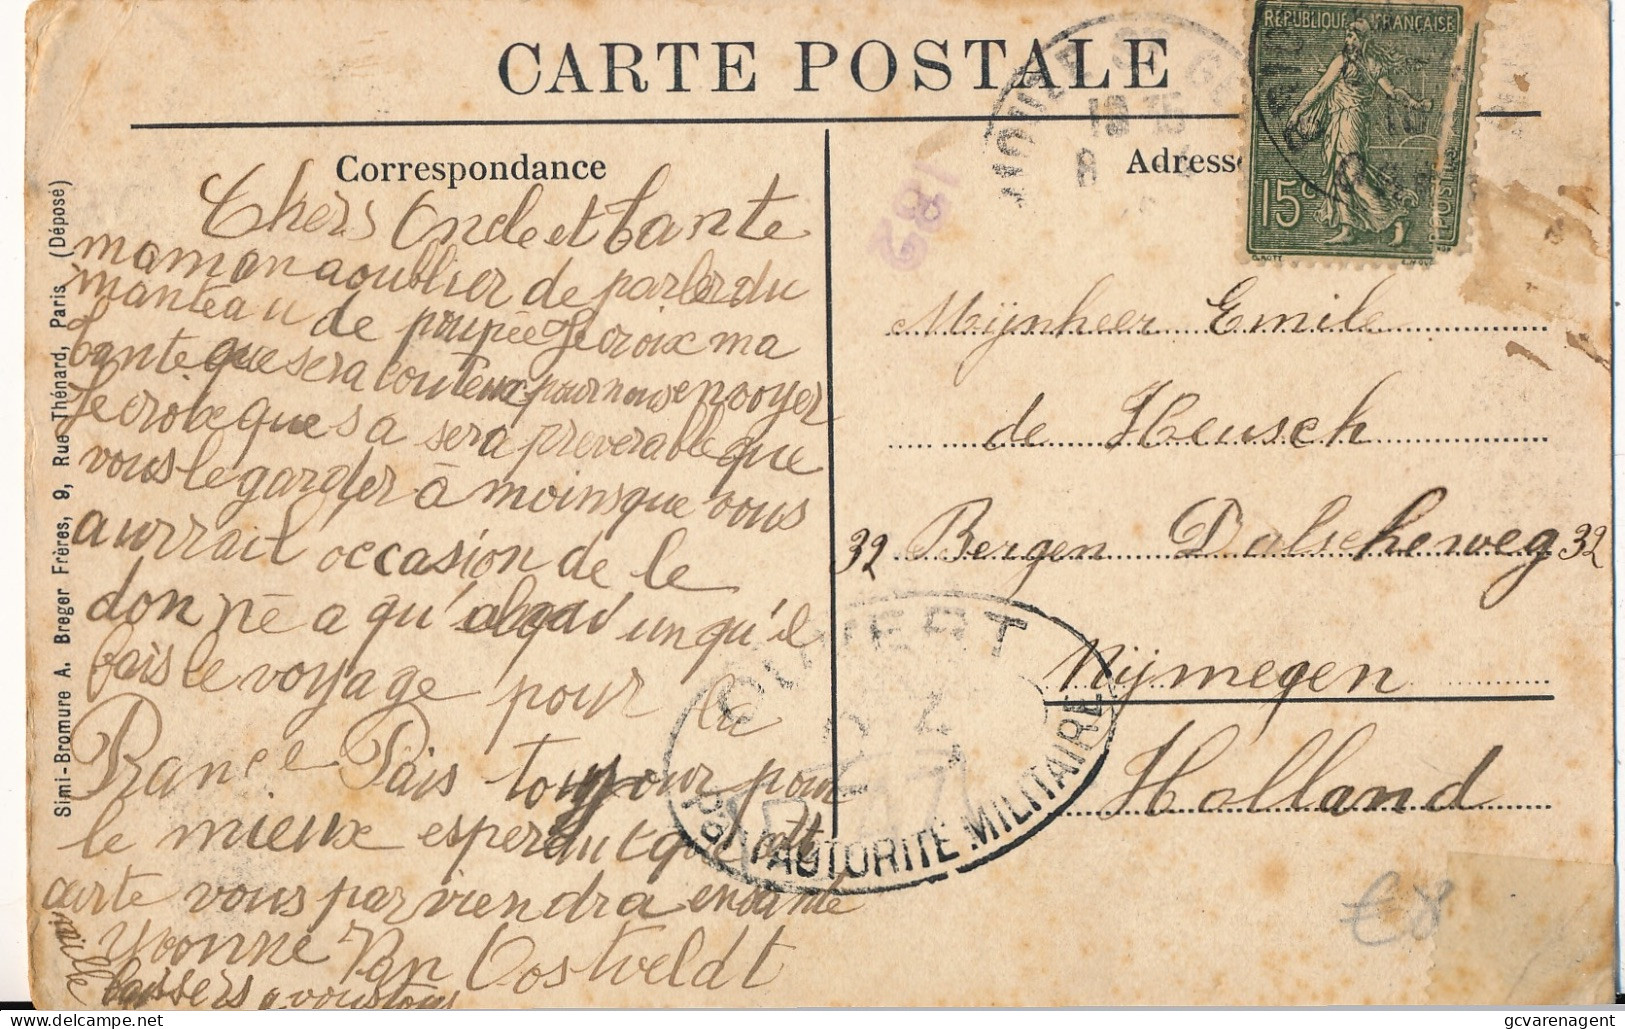 CARTE POSTALE
RÉPUBLIQUE FRANÇAISE
15c
POSTES
Correspondance
Adresse
182
Chers Oncle et tante
maman a oublier de parler du
manteau de poupée Je croix ma
tante que sera couteux pour nous envoyer
Je croix que sa sera preverable que
vous le garder à moins que vous
aurrait occasion de le
donné a qu' un qu'il
fais le voyage pour la
France Pais toujour pour
le mieux esperdut que cette
carte vous parviendra en santé
Yvonne Van Oostveldt
mille baissers a vous tous
Mijnheer Emile
de Heusch
32 Bergen Dalscheweg 32
Nijmegen
Holland
OUVERT
PAR L'AUTORITÉ MILITAIRE
€8
Simi-Bromure A. Breger Frères, 9, Rue Thénard, Paris (Déposé)
gcvarenagent